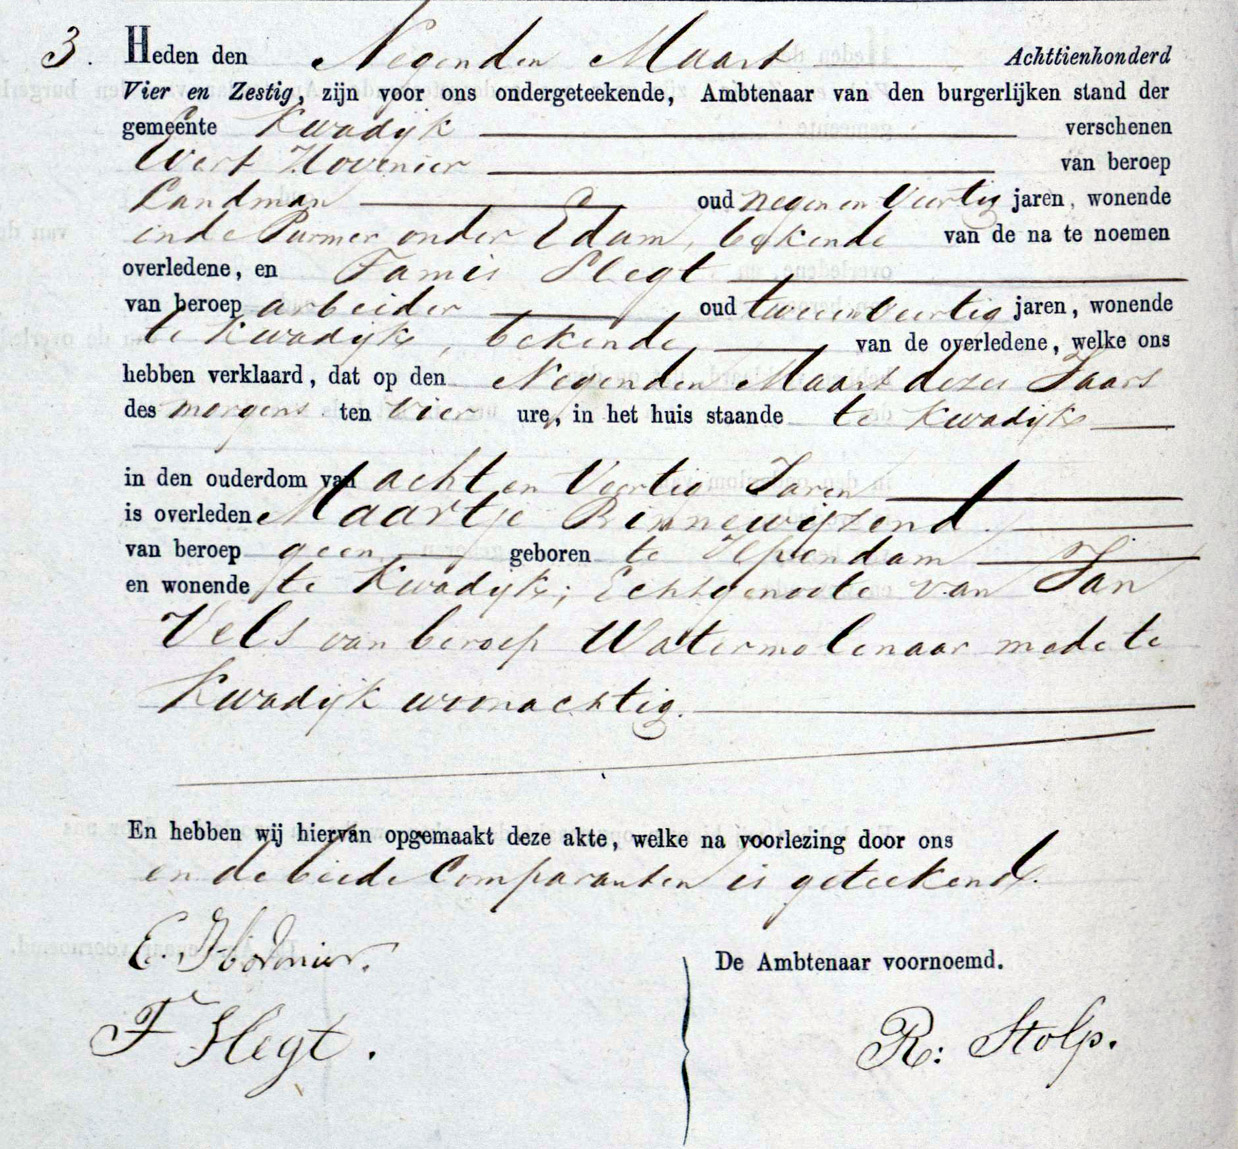 3. Heden den Negenden Maart Achttienhonderd
Vier en Zestig, zijn voor ons ondergeteekende, Ambtenaar van den burgerlijken stand der
gemeente Kwadijk verschenen
Evert Hovenier van beroep
Landman oud negen en Veertig jaren, wonende
in de Purmer onder Edam, bekende van de na te noemen
overledene, en Famis Slegt
van beroep arbeider oud twee en Veertig jaren, wonende
te Kwadijk, bekende van de overledene, welke ons
hebben verklaard, dat op den Negenden Maart dezes Jaars
des morgens ten Vier ure, in het huis staande te Kwadijk
in den ouderdom van acht en Veertig Jaren
is overleden Maartje Binnewijzend.
van beroep geen geboren te Ilpendam
en wonende te Kwadijk; Echtgenoote van Jan
Vels van beroep Watermolenaar mede te
Kwadijk woonachtig.
En hebben wij hiervan opgemaakt deze akte, welke na voorlezing door ons
en de beide Comparanten is geteekend.
E. Hovenier.
De Ambtenaar voornoemd.
F Slegt.
R: Stolp.